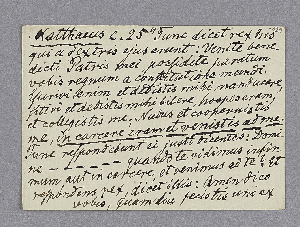 Matthaeus c. 25 Tunc dicet rex his
qui a dextris ejus erunt: Venite bene
dicti Patris mei possidete paratum
vobis regnum a constitutione mundi.
Esurivi enim et dedistis mihi manducare,
sitivi et dedistis mihi bibere hospes eram,
et collegistis me, Nudus et cooperuistis
me, In carcere eram et venistis ad me.
Tunc respondebunt ei justi dicentes: Domi-
ne — — — — quando te vidimus infir-
mum, aut in carcere, et venimus ad te? Et
respondens rex, dicet illis: Amen dico
vobis, quamdiu fecistis uni ex